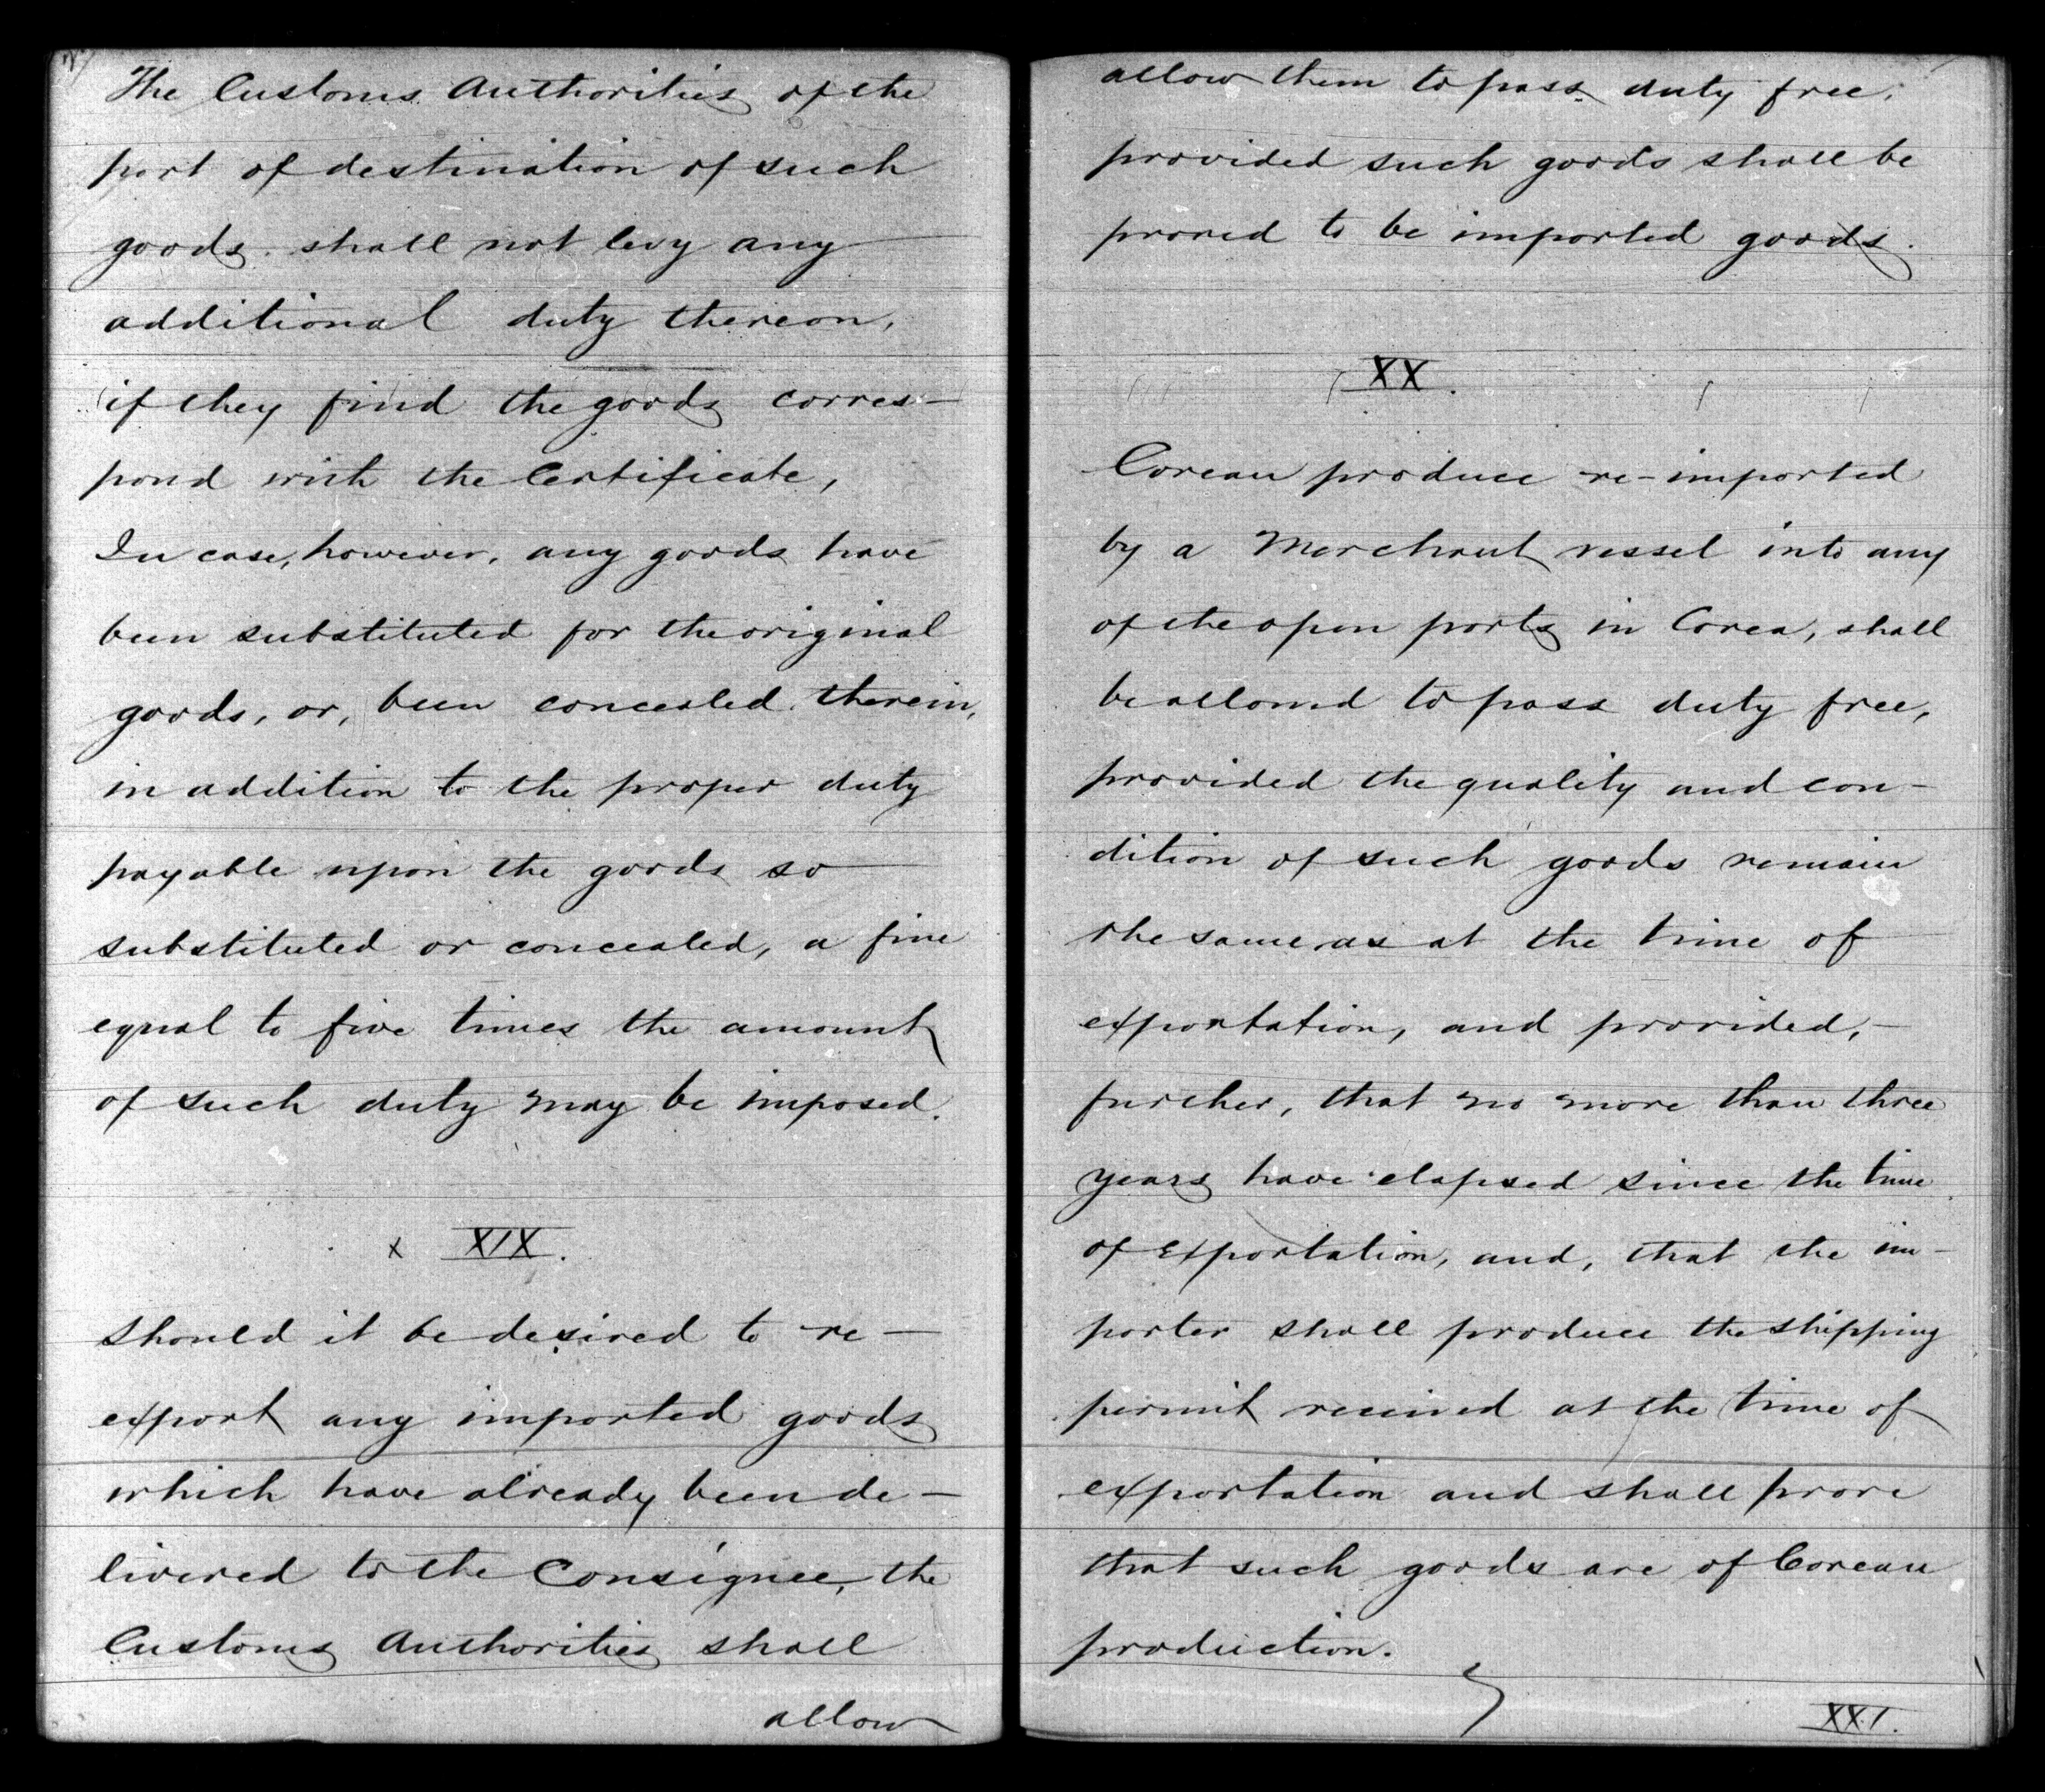 The Customs Authorities of the
port of destination of such
goods. shall not levy any
additional duty thereon,
if they find the goods corres-
pond with the Certificate,
In case, however, any goods have
been substituted for the original
goods, or, been concealed therein,
in addition to the proper duty
payable upon the goods so
substituted or concealed, a fine
equal to five times the amount
of such duty may be imposed.
x XIX.
Should it be desired to re-
export any imported goods
which have already been de-
livered to the Consignee, the
Customs Authorities shall
allow
allow them to pass duty free,
provided such goods shall be
proved to be imported goods.
XX.
Corean produce re-imported
by a Merchant vessel into any
of the open ports in Corea, shall
be allowed to pass duty free,
provided the quality and con-
dition of such goods remain
the same as at the time of
exportation, and provided,-
further, that no more than three
years have elapsed since the time
of exportation, and, that the im-
porter shall produce the shipping
permit received at the time of
exportation and shall prove
that such goods are of Corean
production.
XXI.